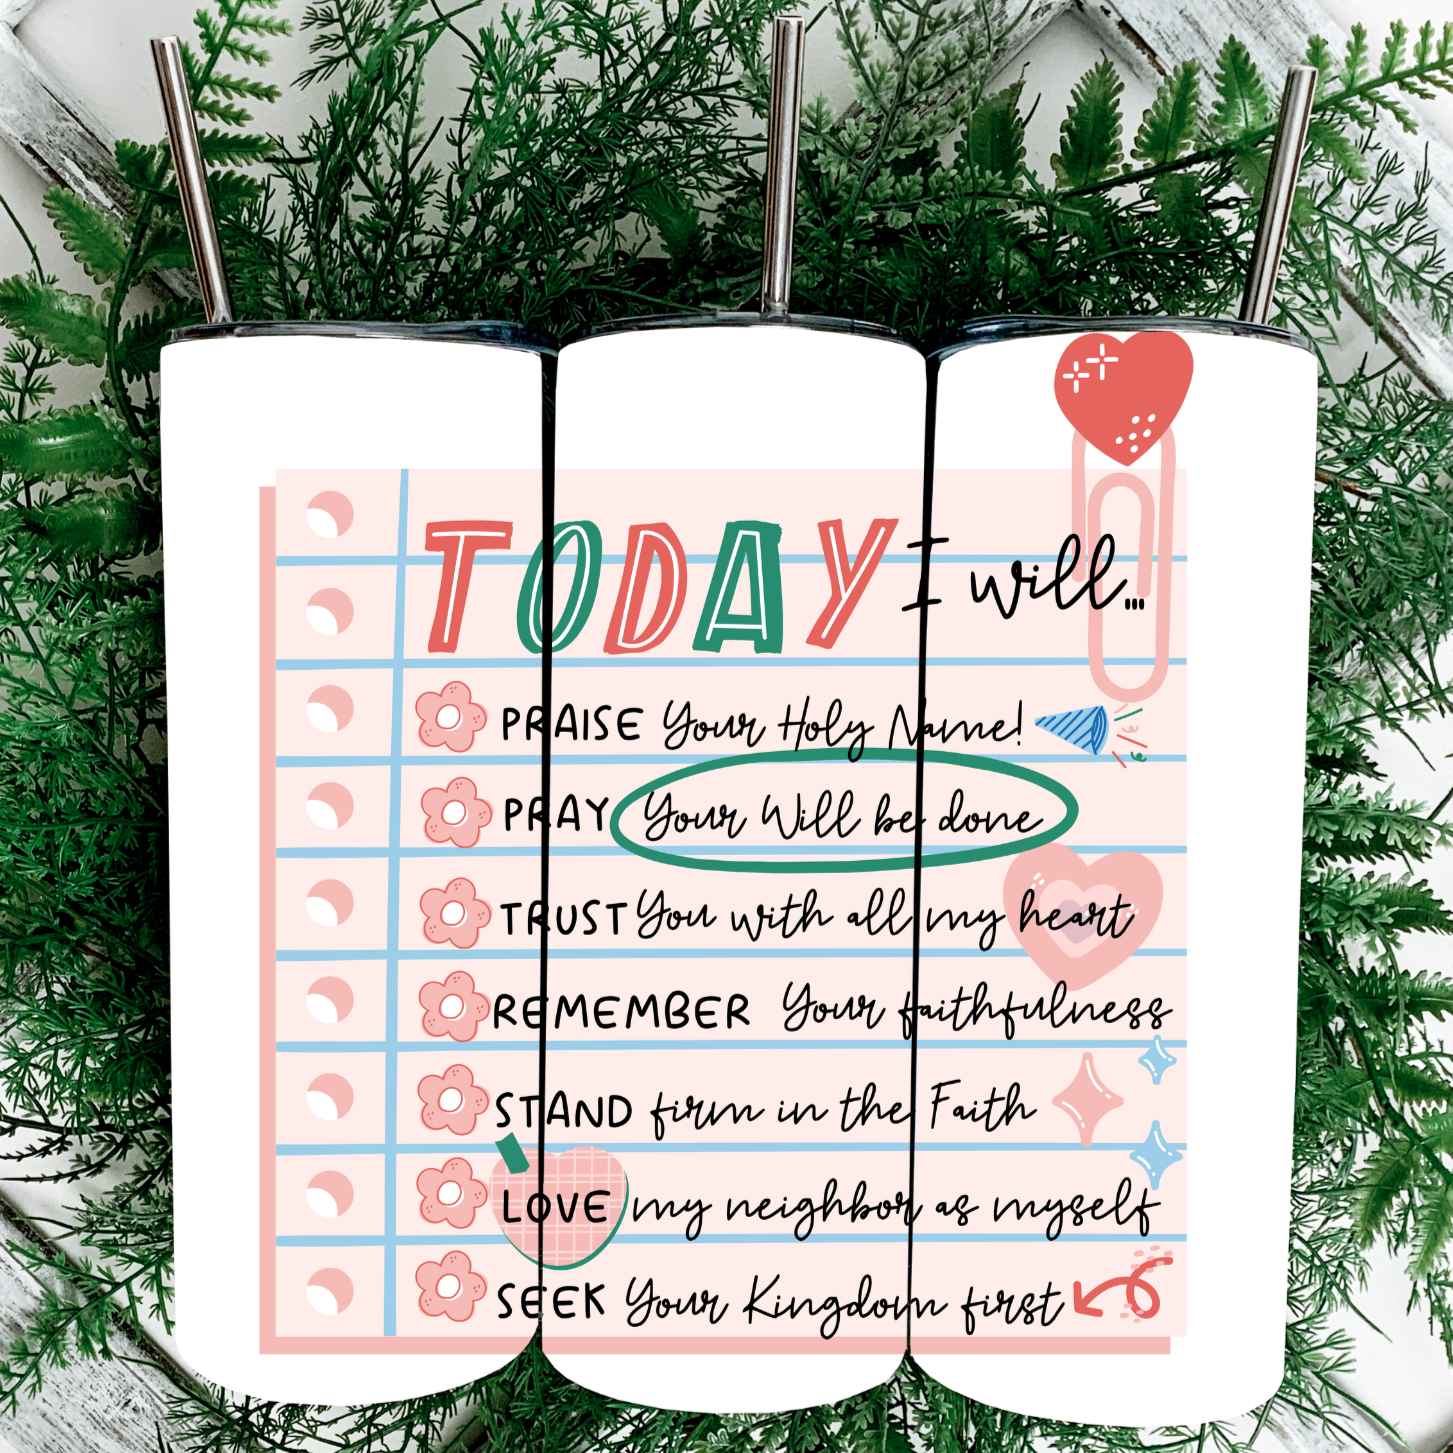 TODAY I will...
PRAISE Your Holy Name!
PRAY Your Will be done
TRUST You with all my heart
REMEMBER Your faithfulness
STAND firm in the Faith
LOVE my neighbor as myself
SEEK Your Kingdom first